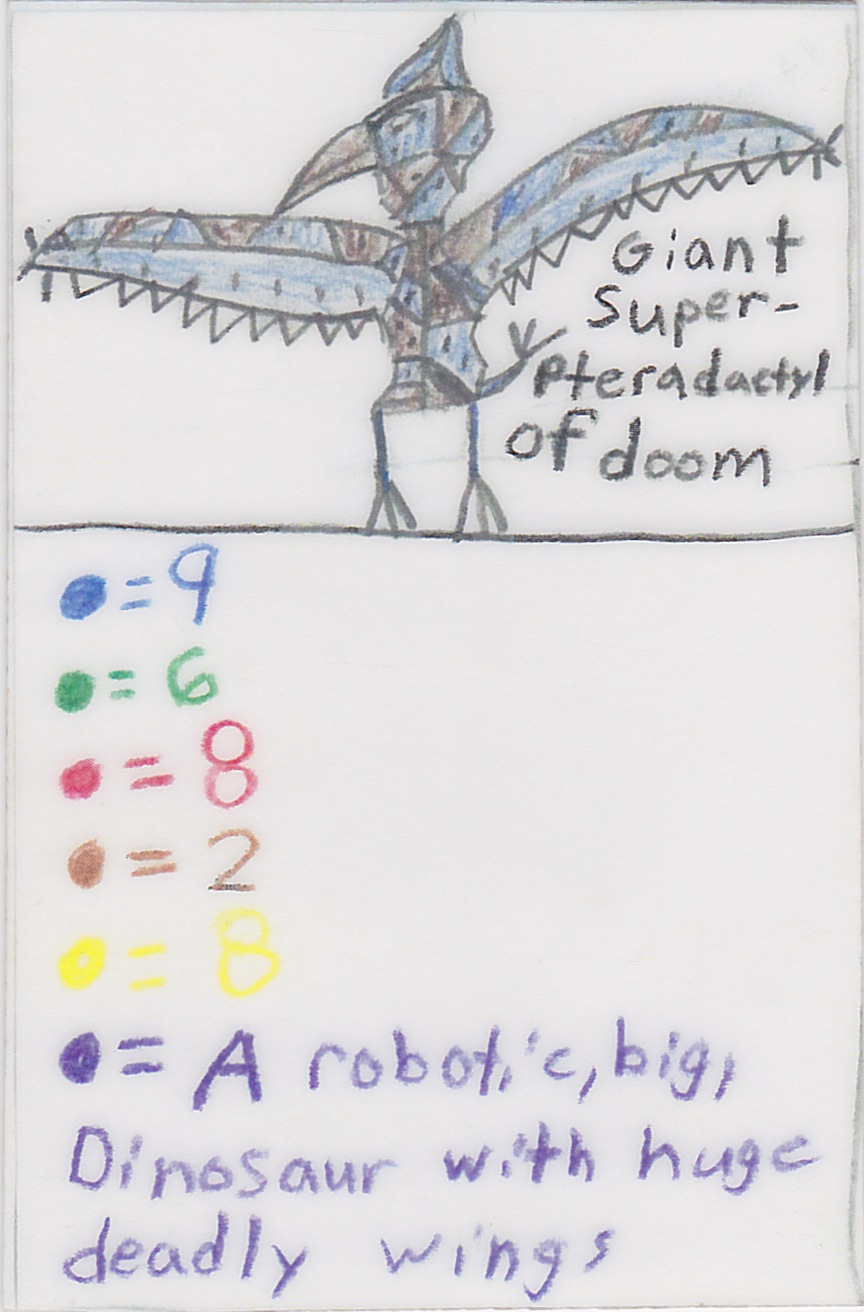 Giant
Super-
Pteradactyl
of doom
= 9
= 6
= 8
= 2
= 8
= A robotic, big,
Dinosaur with huge
deadly wings